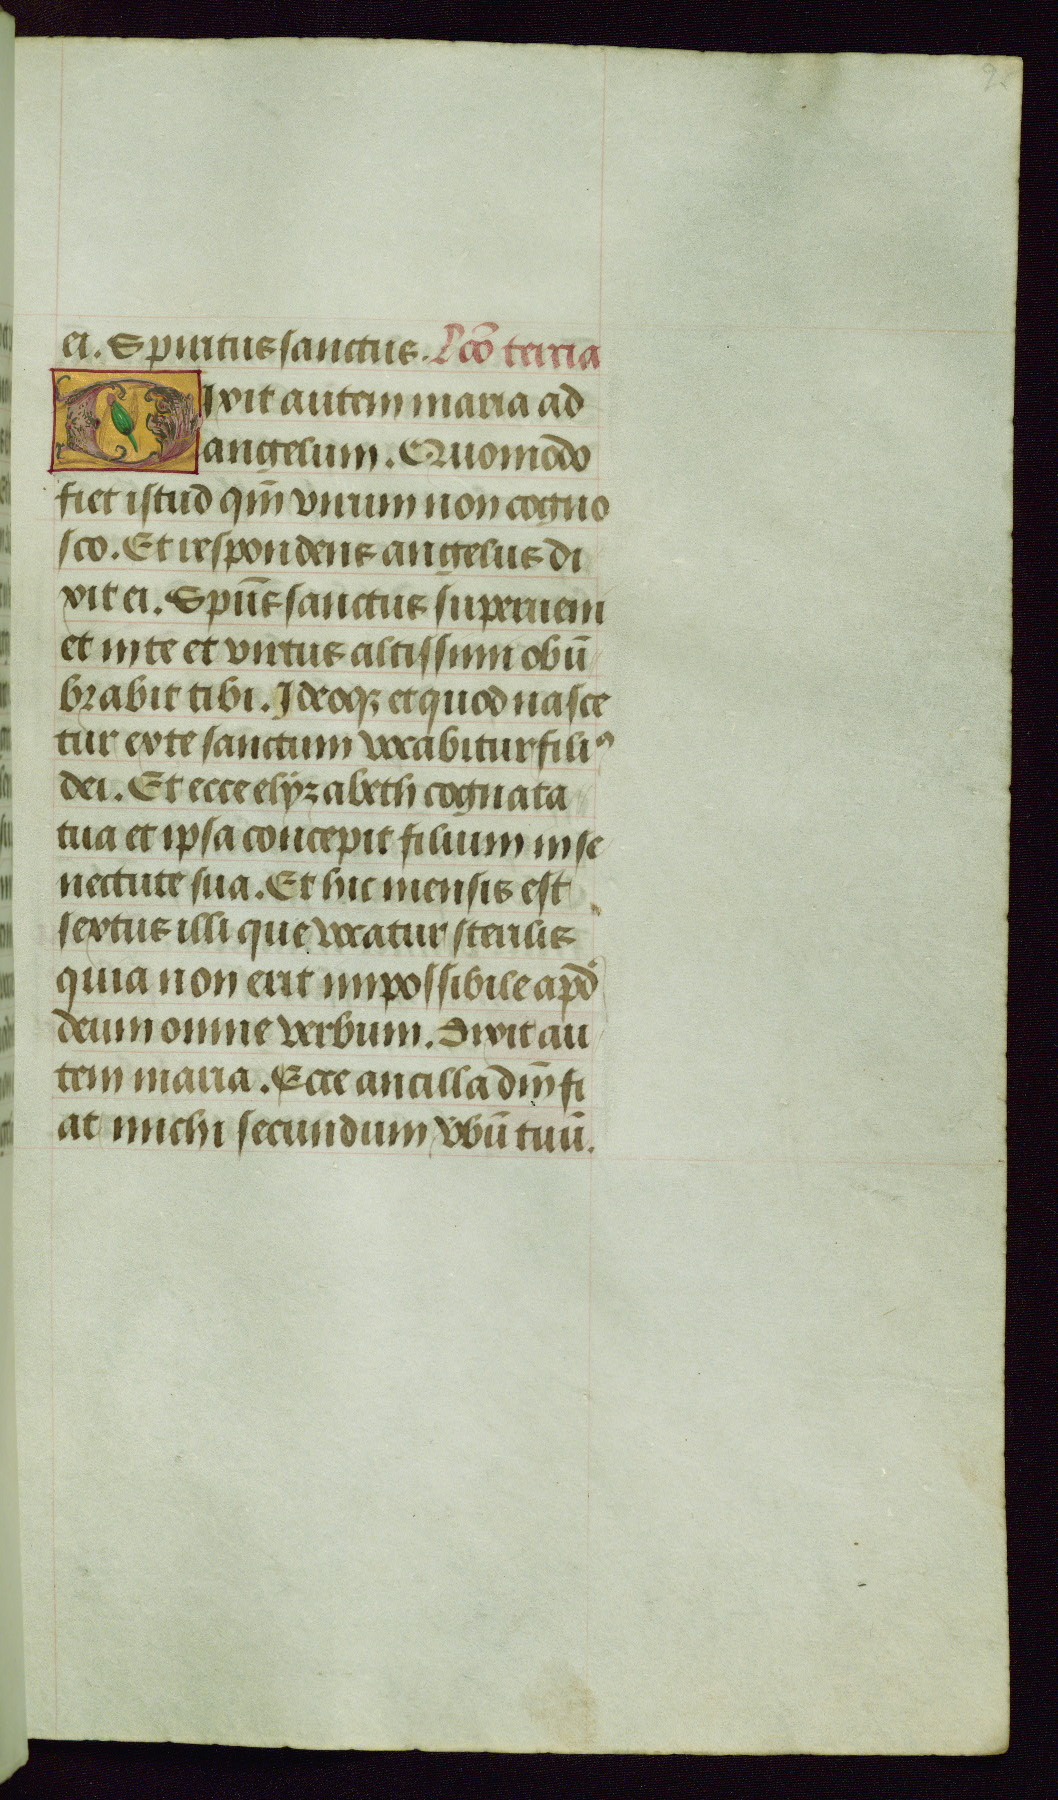 ei. Spiritus sanctus. Lcō tercia
Dixit autem maria ad
angelum. Quomodo
fiet istud qm̄ virum non cogno
sco. Et respondens angelus di
xit ei. Spūs sanctus superueni
et in te et virtus altissimi obū
brabit tibi. Ideoqꝫ et quod nasce
tur ex te sanctum vocabitur filiꝰ
dei. Et ecce elÿzabeth cognata
tua et ipsa concepit filium in se
nectute sua. Et hic mensis est
sextus illi que vocatur sterilis
quia non erit impossibile apd̄
deum omne verbum. Dixit au
tem maria. Ecce ancilla dn̄i fi
at michi secundum v̄bū tuū.